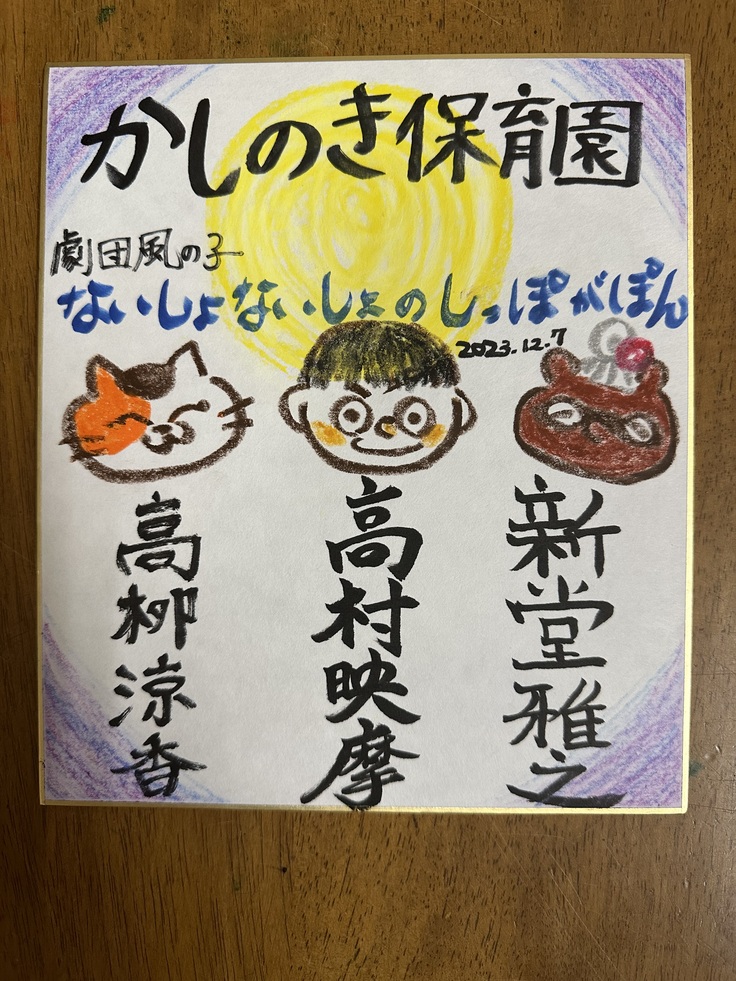 かしのき保育園
劇団風の子
ないしょないしょのしっぽがぽん
2023.12.7
新堂雅之
高村映摩
高柳涼香